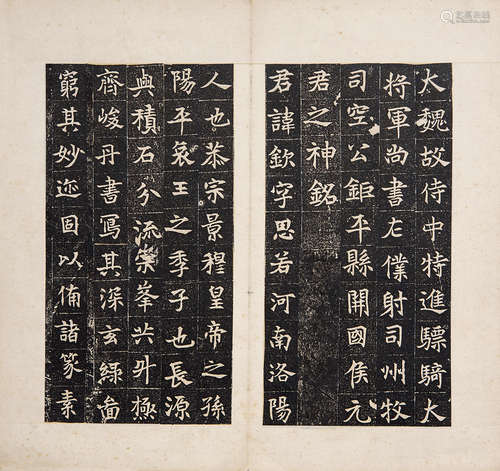 大魏故侍中特進驃騎大
將軍尚書左僕射司州牧
司空公鉅平縣開國侯元
君之神銘
君諱欽字思若河南洛陽
人也恭宗景穆皇帝之孫
陽平哀王之季子也長源
與積石分流崇峯共升極
齊峻丹書寫其深玄綠圖
窮其妙迹固以備諸篆素